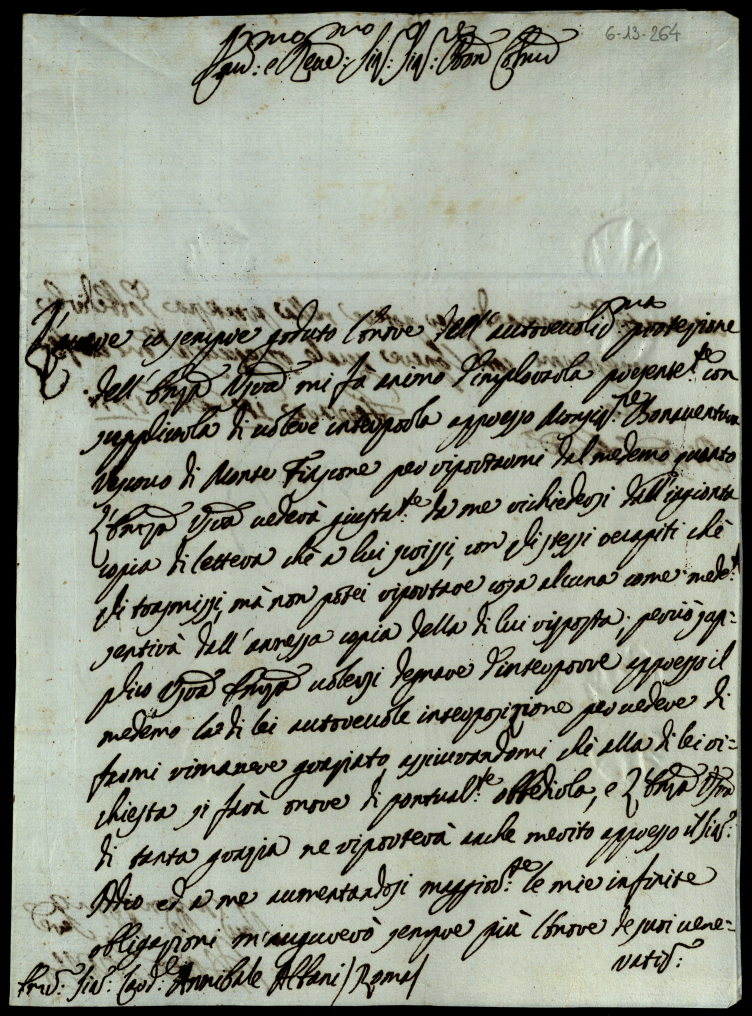 6-13-264
Em.mo e Rev.mo Sig.r Sig.r Pron Col.mo
L'havere io sempre goduto l'honore dell'autorevoliss.ma protezzione
dell'Em.za V.ra mi fà animo d'implorarla presente.te con
supplicarla di volere interporla appresso Monsig.re Bonaventura
Vescovo di Monte Fiascone per riportarmi dal medemo quanto
l'Em.za V.ra vederà giusta.te da me richiedersi dall'ingionta
copia di lettera ché a lui scrissi, con gli stessi recapiti ché
gli trasmissi, mà non potei riportare cosa alcuna come mede.te
sentirà dall'annessa copia della di lui risposta; perciò sup-
plico V.ra Em.za volersi degnare d'interporre appresso il
medemo la di lei autorevole interposizione per vedere di
farmi rimanere graziato, assicurandomi ché alla di lei ri-
chiesta si farà onore di pontual.te obbedirla, e l'Em.za V.ra
di tanta grazia ne riporterà anche merito appresso il Sig.r
Idio ed a me aumentandosi maggior.te le mie infinite
obligazioni m'augurerò sempre più l'onore de suoi vene-
ratis.
Em.o Sig. Card.le Annibale Albani / Roma /